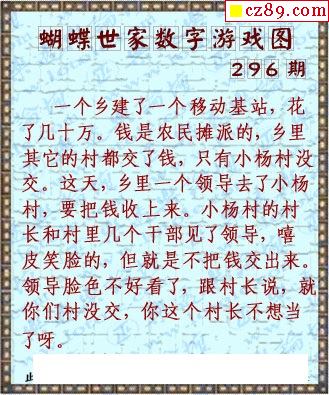 cz89.com
蝴蝶世家数字游戏图
296 期
一个乡建了一个移动基站，花
了几十万。钱是农民摊派的，乡里
其它的村都交了钱，只有小杨村没
交。这天，乡里一个领导去了小杨
村，要把钱收上来。小杨村的村
长和村里几个干部见了领导，嘻
皮笑脸的，但就是不把钱交出来。
领导脸色不好看了，跟村长说，就
你们村没交，你这个村长不想当
了呀。